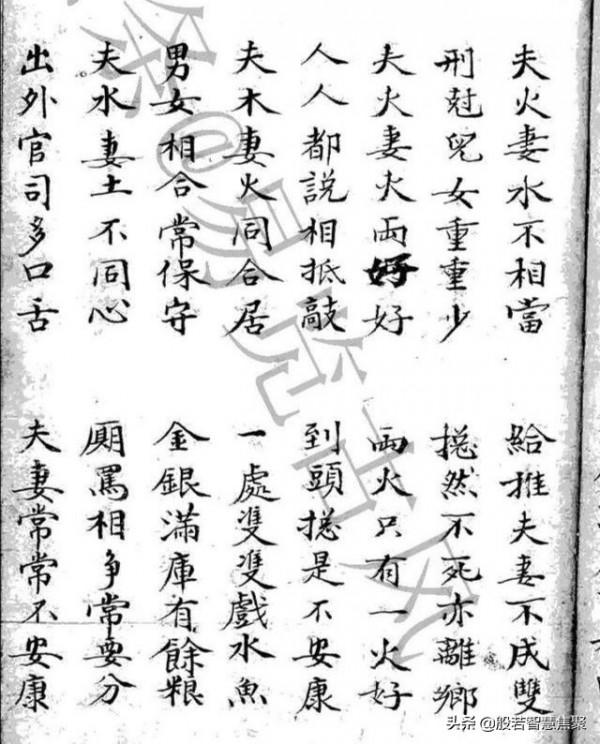 夫火妻水不相當 給推夫妻不成雙
刑尅兒女重重少 摠然不死亦離鄉
夫火妻火兩好好 兩火只有一火好
人人都說相抵敵 到頭摠是不安康
夫木妻火同合居 一處雙雙戲水魚
男女相合常保守 金銀滿庫有餘粮
夫水妻土不同心 罵相爭常要分
出外官司多口舌 夫妻常常不安康
頭条 @般若智慧焦聚